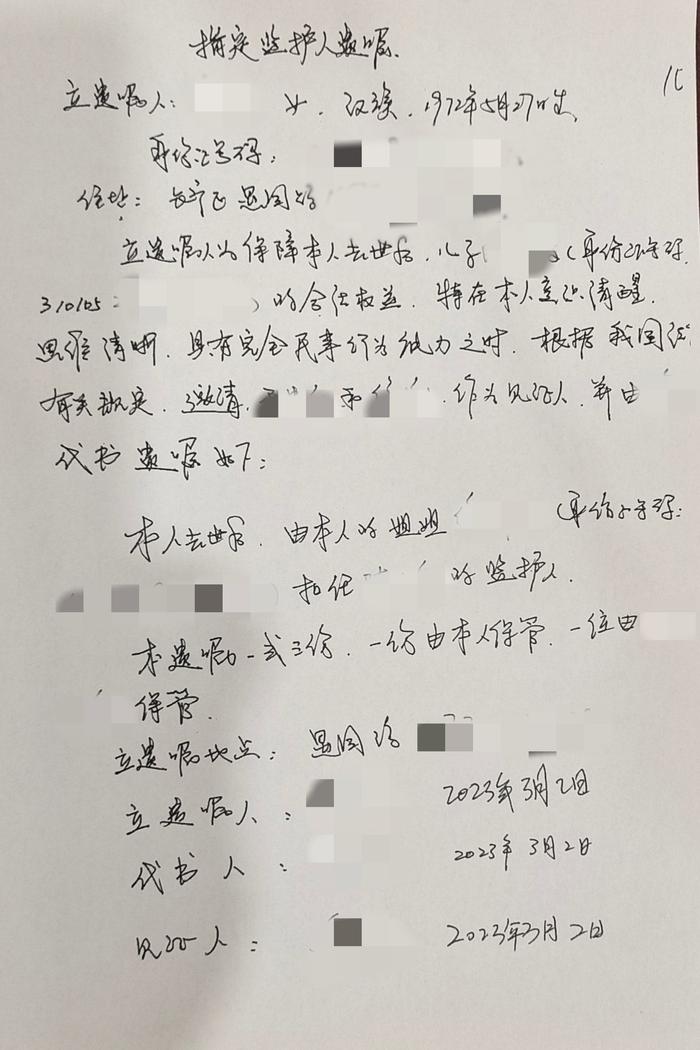 指定监护人遗嘱.
立遗嘱人: 女. 汉族. 1972年5月27日生,
身份证号码:
住址: 长宁区 路
立遗嘱人为保障本人去世后, 儿子 (身份证号码.
310105 ) 的合法权益. 特在本人意识清醒.
思维清晰. 具有完全民事行为能力之时. 根据我国
有关规定. 邀请. 和 作为见证人. 并由
代书遗嘱如下:
本人去世后. 由本人的姐姐 (身份证号码:
担任 的监护人.
本遗嘱一式三份. 一份由本人保管. 一位由
保管.
立遗嘱地点: 路
立遗嘱人: 2023年3月2日
代书人: 2023年3月2日
见证人: 2023年3月2日